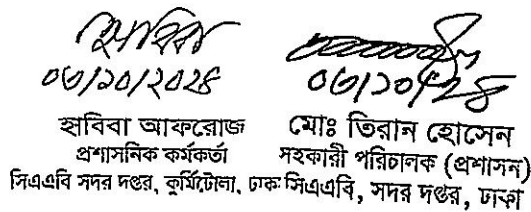 হাবিবা
০৬/১০/২০২৪
হাবিবা আফরোজ
প্রশাসনিক কর্মকর্তা
সিএএবি সদর দপ্তর, কুর্মিটোলা, ঢাকা
০৬/১০/২৪
মোঃ তিরান হোসেন
সহকারী পরিচালক (প্রশাসন)
সিএএবি, সদর দপ্তর, ঢাকা